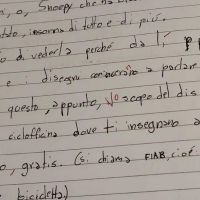 , o, Snoopy che ha
do, insomma di tutto e di più.
o di vederla perché da lì,
e i disegni cominciano a parlare
questo, appunto, lo scopo del dis
ciclofficina dove ti insegnano a
o, gratis. (Si chiama FIAB, cioè
bicicletta)